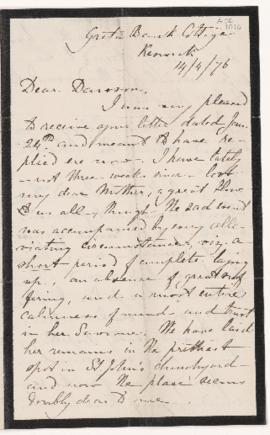 Greta Bank Cottage
Keswick
14/4/76
Dear Dawson,
I was very pleased
to receive your letter dated Jan.
24th and meant to have re-
plied ere now. I have lately
— not three weeks since — lost
my dear Mother, a great blow
to us all, though the sad event
was accompanied by many alle-
viating circumstances, viz, a
short period of complete laying
up, an absence of great suf-
fering, and a most entire
calmness of mind and trust
in her Saviour. We have laid
her remains in the prettiest
spot in St John's churchyard —
and now the place seems
doubly dear to me.